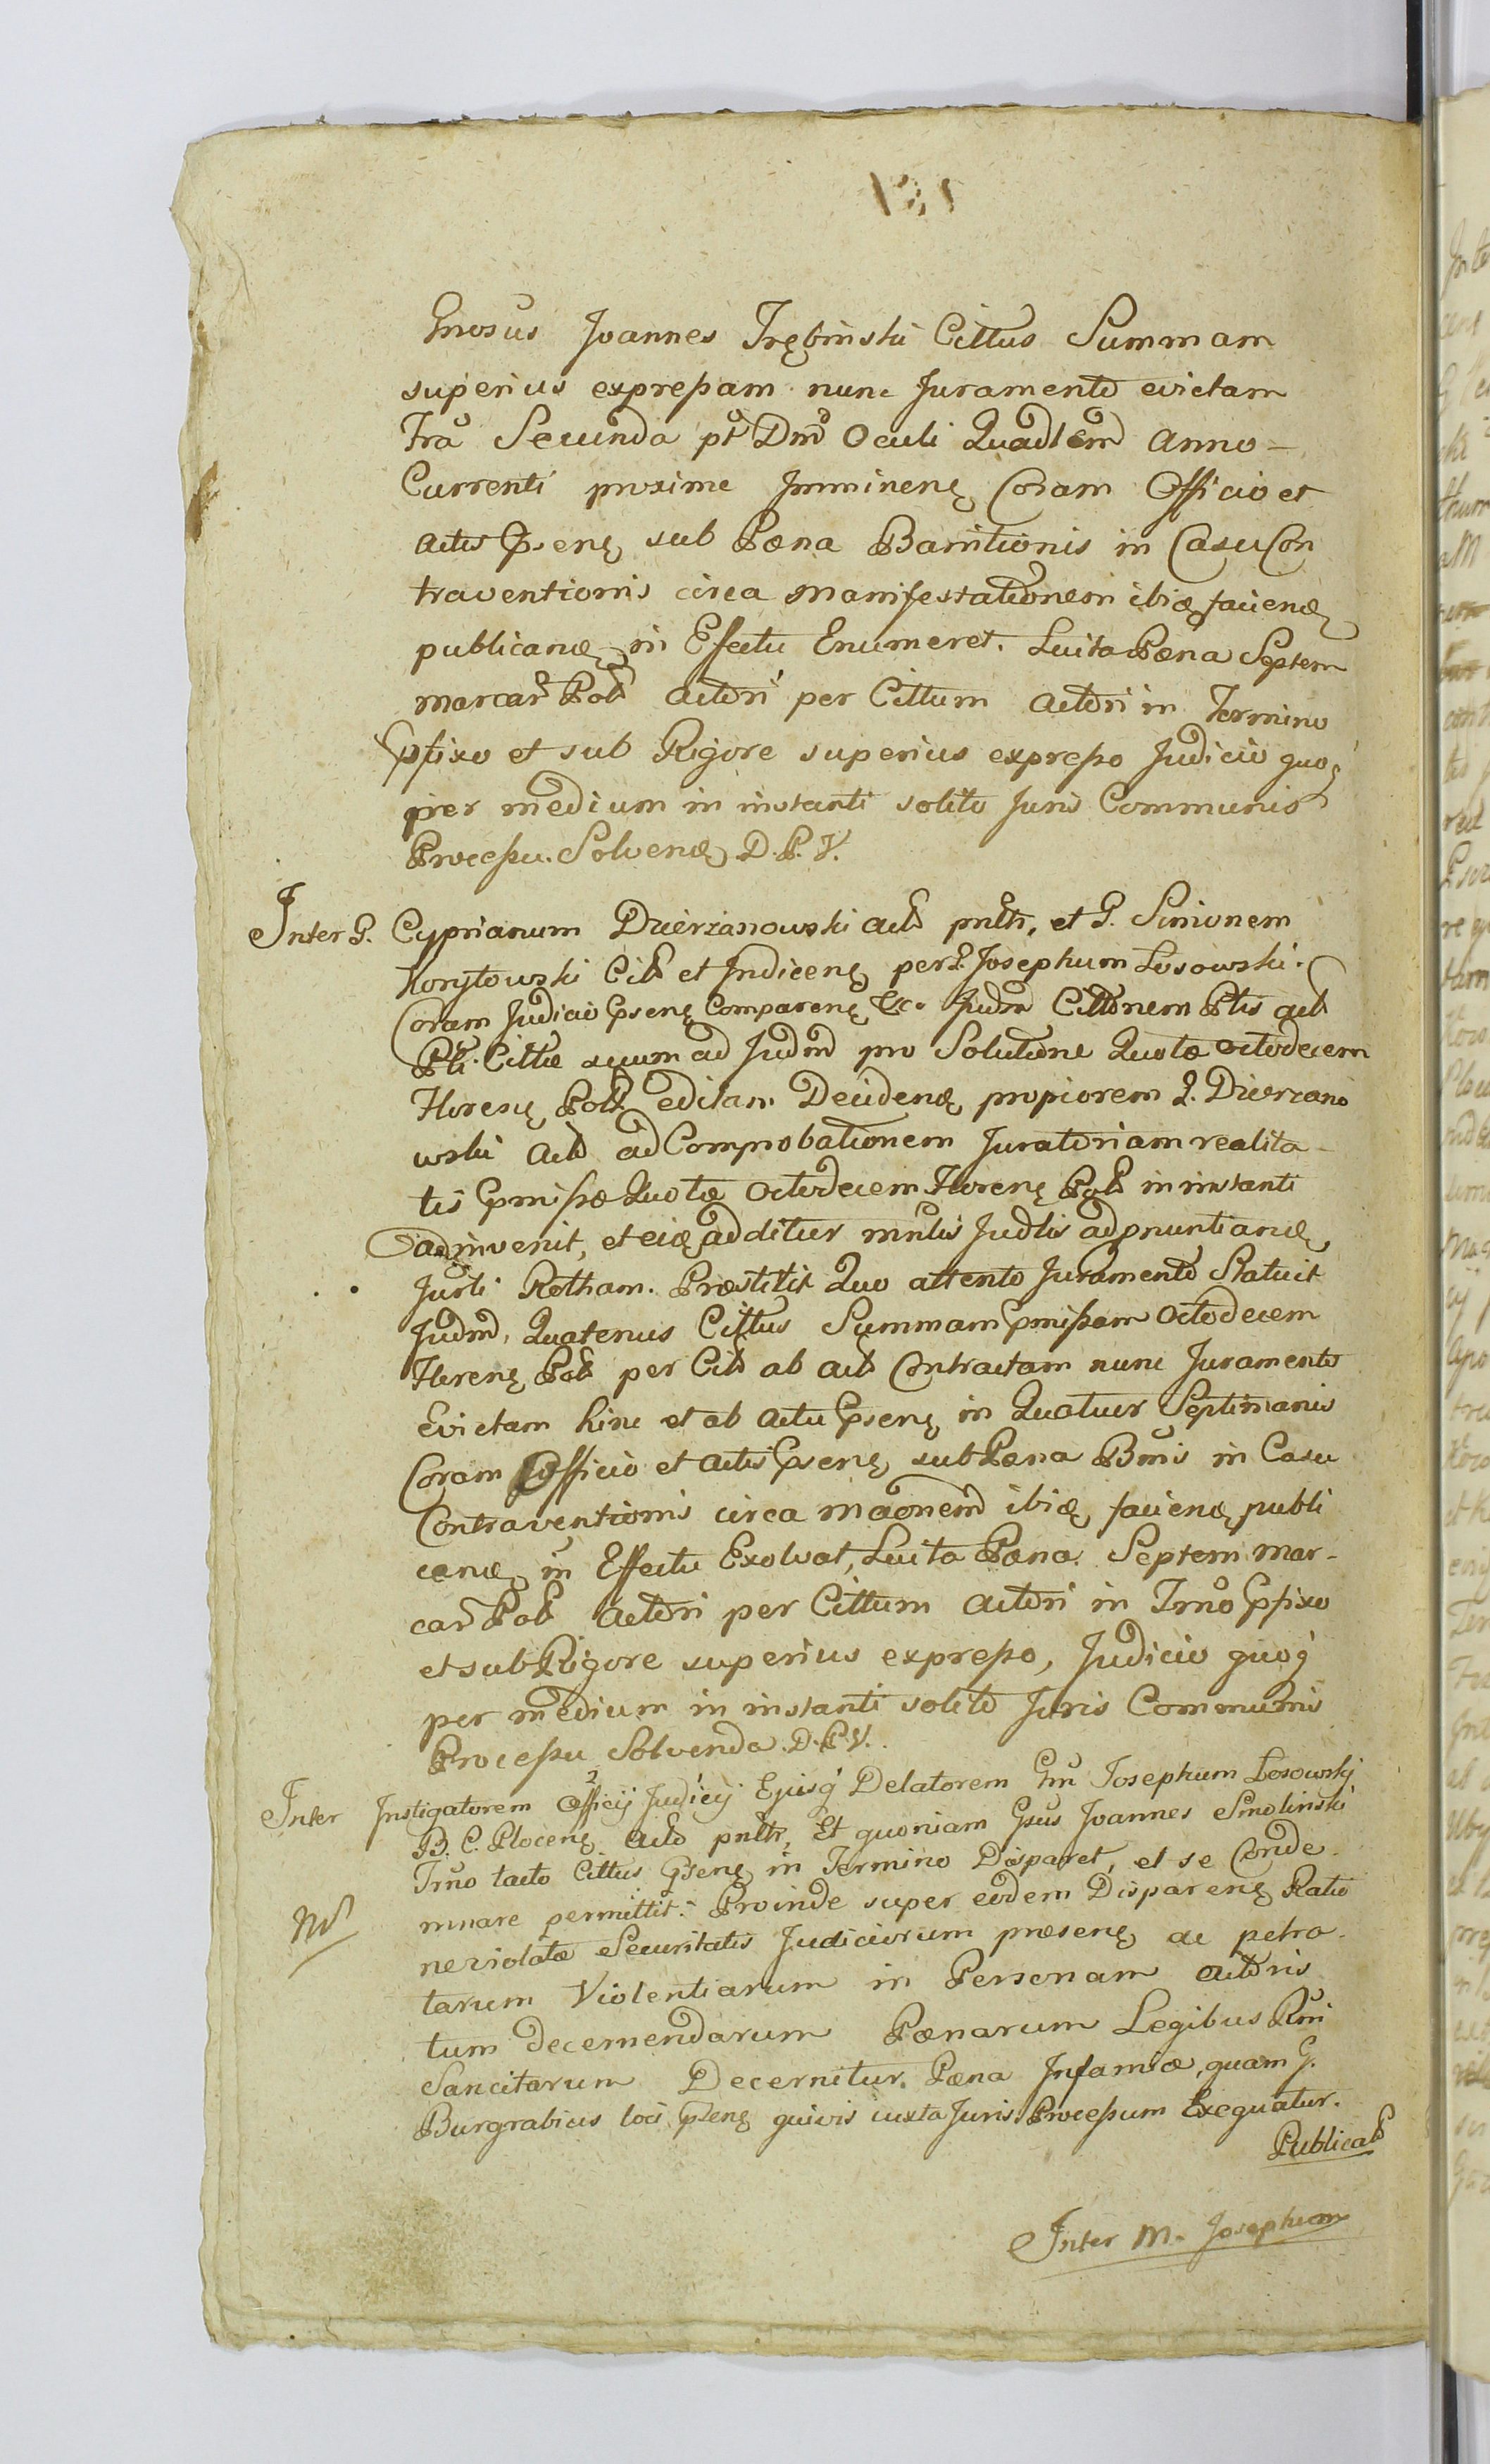 Gnosus Joannes Trębinski Cittus Summam
superius expressam nunc Juramento evictam
fra Secunda pt Dm̃ Oculi Quadlem anno
Currenti proxime Imminenę Coram Officio et
actis Ꝓsenę sub Pæna Bannitionis in Casu Con
traventionis circa Manifestationem ibiđ faciend
publicanđ in Effectu Enumeret. Luita Pæna Septem
marcar̃ Pol actori per Cittum actori in Termino
Ꝓfixo et sub Rigore superius expresso Judicio quoq
per medium in instanti solito Juris Communis
Processu. Solvenđ D. P. V.
Inter G. Cyprianum Dzierzanowski act pnltr, et G. Simonem
Korytowski Cit et Indicenę per G. Josephum Losowski.
Coram Judicio Ꝓsenę Comparenę &c. Judm Cittonem Ptis act
Pti Cittæ suum ad Judm pro Solutione Quotæ octodecem
Florenę Poll editam Decidenđ propiorem G. Dzierzano
wski act ad Comprobationem Juratoriam realita-
tis Ꝓmissæ Quotæ octodecem Florenę Pol in instanti
adinvenit, et eiđ additur mnlis Judlis ad pnuntianđ
Jurti Rotham. Præstitit Quo attento Juramento Statuit
Judm, Quatenus Cittus Summam Ꝓmissam octodecem
Florenę Pol per Cit ab act Contractam nunc Juramento
Evictam hinc et ab actu Ꝓsenę in Quatuor Septimanis
Coram Officio et actis Ꝓsenę sub Pæna Bnis in Casu
Contraventionis circa maonem ibiđ faciend publi
canđ in Effectu Exolvat, Luita Pæna Septem mar-
car̃ Pol actori per Cittum actori in Trno Ꝓfixo
et sub Rigore superius expresso, Judicio quoq
per medium in instanti solito Juris Communis
Processu Solvenda. D. P. V.
Inter Instigatorem Officij Judicij Ejusq Delatorem Gnu Josephum Losowskj
B. C. Plocenę act pnltr, Et quoniam Gsus Joannes Smolinski
Trno tacto Cittus Ꝓsenę in Termino Disparet, et se Conde-
N
mnare permittit. Proinde super eodem Disparenę Ratio
ne violatæ Securitatis Judiciorum præsenę ac petra-
tarum Violentiarum in Personam actoris
tum decernendarum Pænarum Legibus Rni
Sancitarum Decernitur. Pæna Infamiæ, quam G.
Burgrabius loci Ꝓsenę quivis iuxta Juris Processum Exequatur.
Publicat
Inter M. Josephum